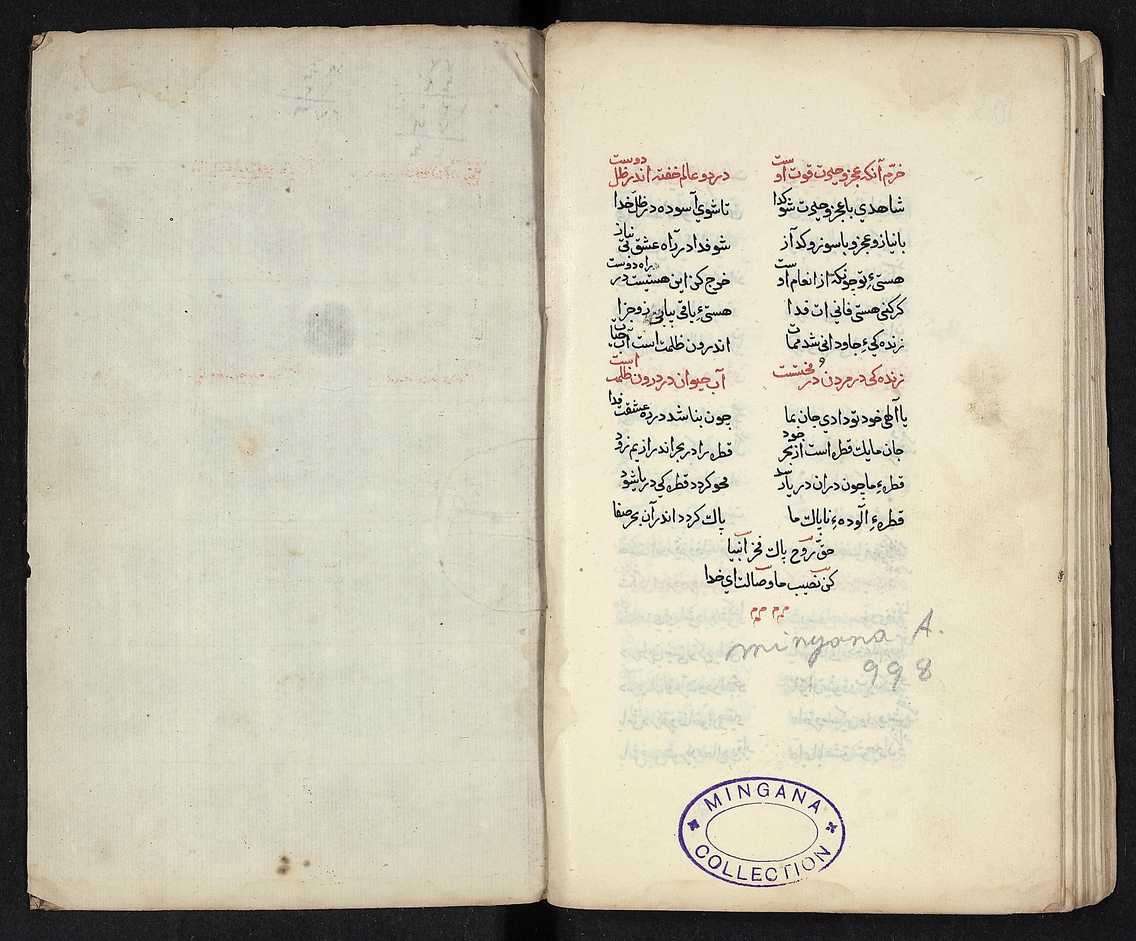 خرّم آنکه عجز و حیرت قوت اوست در دو عالم خفته اندر ظل دوست
شاهدي با عجز و حیرت شو کدا تا شوي آسوده در ظلّ خدا
با نیاز و عجز و با سوز و کداز شو فدا در راه عشق بي نیاز
هستیء تو چونکه از انعام اوست خرج کن این هستیت در راه دوست
کر کني هستي فاني ات فدا هستیء باقي بیابي زو جزا
زنده کيء جاوداني شد ممات اندرون ظلمت است آب حیات
زنده کي در مردن و در آب حیوان در درون ظلمت است
یا آلهي خود تو دادي جان بما چون بناشد در ره عشقت فدا
جان ما یك قطره است از بحر جود قطره را در بحر اندراز یم زود
قطرهء ما چون دران دریا رسد محو کردد قطره کي دریا شود
قطرهء آلودهء ناپاك ما پاك کردد اندر آن بحر صفا
حقّ روح پاك فخر انبیا
کن نصیب ما وصالت اي خدا
م م م م
Mingana A.
998
MINGANA
COLLECTION